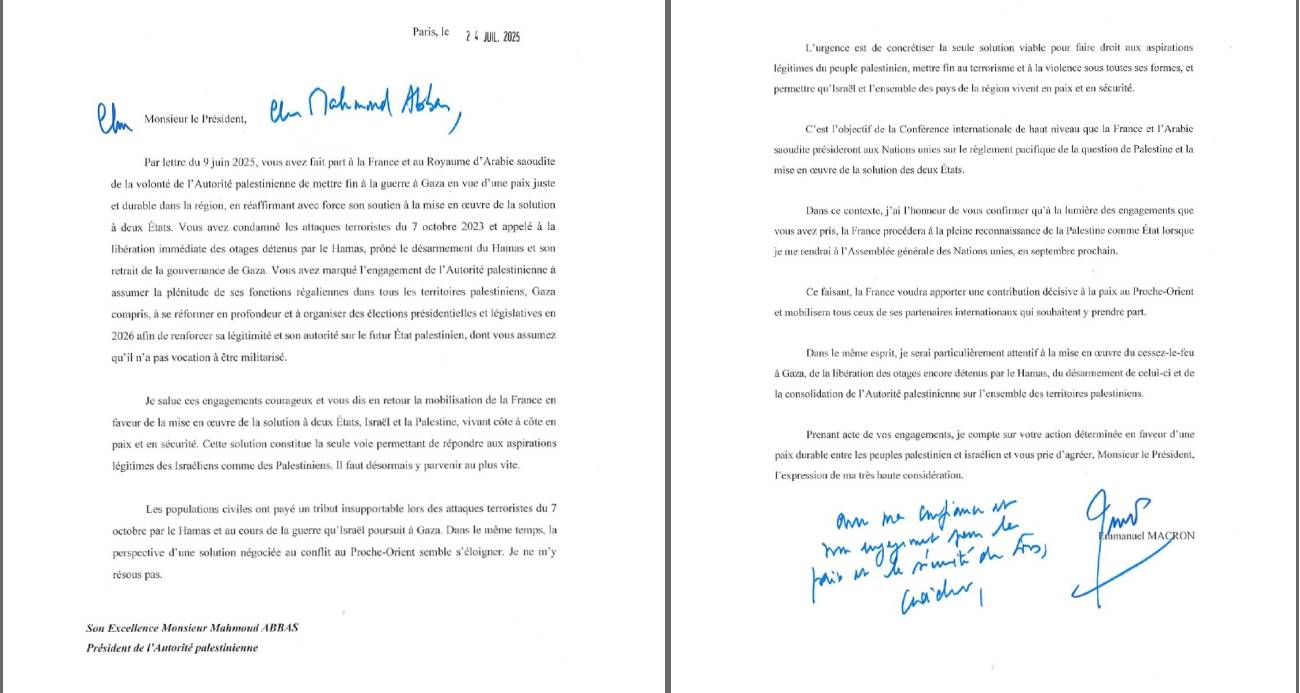 Paris, le 24 JUIL. 2025
Cher Monsieur le Président, Cher Mahmoud Abbas,
Par lettre du 9 juin 2025, vous avez fait part à la France et au Royaume d’Arabie saoudite
de la volonté de l’Autorité palestinienne de mettre fin à la guerre à Gaza en vue d’une paix juste
et durable dans la région, en réaffirmant avec force son soutien à la mise en œuvre de la solution
à deux États. Vous avez condamné les attaques terroristes du 7 octobre 2023 et appelé à la
libération immédiate des otages détenus par le Hamas, prôné le désarmement du Hamas et son
retrait de la gouvernance de Gaza. Vous avez marqué l’engagement de l’Autorité palestinienne à
assumer la plénitude de ses fonctions régaliennes dans tous les territoires palestiniens, Gaza
compris, à se réformer en profondeur et à organiser des élections présidentielles et législatives en
2026 afin de renforcer sa légitimité et son autorité sur le futur État palestinien, dont vous assumez
qu’il n’a pas vocation à être militarisé.
Je salue ces engagements courageux et vous dis en retour la mobilisation de la France en
faveur de la mise en œuvre de la solution à deux États, Israël et la Palestine, vivant côte à côte en
paix et en sécurité. Cette solution constitue la seule voie permettant de répondre aux aspirations
légitimes des Israéliens comme des Palestiniens. Il faut désormais y parvenir au plus vite.
Les populations civiles ont payé un tribut insupportable lors des attaques terroristes du 7
octobre par le Hamas et au cours de la guerre qu’Israël poursuit à Gaza. Dans le même temps, la
perspective d’une solution négociée au conflit au Proche-Orient semble s’éloigner. Je ne m’y
résous pas.
Son Excellence Monsieur Mahmoud ABBAS
Président de l’Autorité palestinienne
L’urgence est de concrétiser la seule solution viable pour faire droit aux aspirations
légitimes du peuple palestinien, mettre fin au terrorisme et à la violence sous toutes ses formes, et
permettre qu’Israël et l’ensemble des pays de la région vivent en paix et en sécurité.
C’est l’objectif de la Conférence internationale de haut niveau que la France et l’Arabie
saoudite présideront aux Nations unies sur le règlement pacifique de la question de Palestine et la
mise en œuvre de la solution des deux États.
Dans ce contexte, j’ai l’honneur de vous confirmer qu’à la lumière des engagements que
vous avez pris, la France procédera à la pleine reconnaissance de la Palestine comme État lorsque
je me rendrai à l’Assemblée générale des Nations unies, en septembre prochain.
Ce faisant, la France voudra apporter une contribution décisive à la paix au Proche-Orient
et mobilisera tous ceux de ses partenaires internationaux qui souhaitent y prendre part.
Dans le même esprit, je serai particulièrement attentif à la mise en œuvre du cessez-le-feu
à Gaza, de la libération des otages encore détenus par le Hamas, du désarmement de celui-ci et de
la consolidation de l’Autorité palestinienne sur l’ensemble des territoires palestiniens.
Prenant acte de vos engagements, je compte sur votre action déterminée en faveur d’une
paix durable entre les peuples palestinien et israélien et vous prie d’agréer, Monsieur le Président,
l’expression de ma très haute considération.
Avec ma confiance et
mon engagement pour la
paix et la sécurité de tous,
Emmanuel MACRON